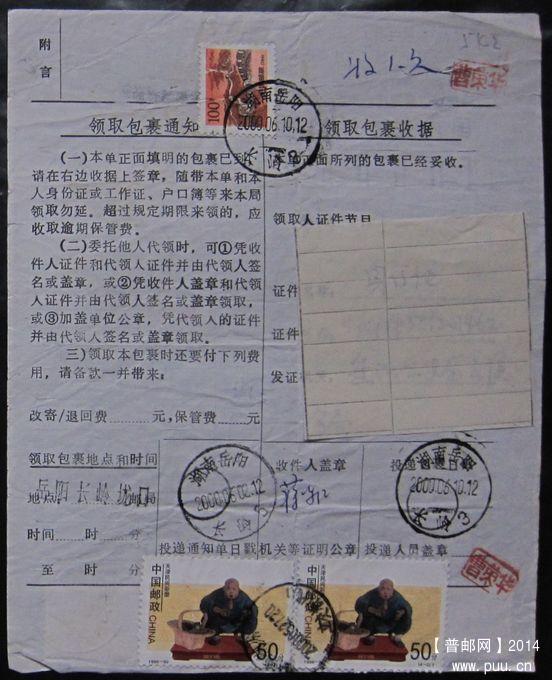 附
言
收1次
曹英华
100
湖南岳阳
2000.06.10.12
长岭
领取包裹通知
领取包裹收据
(一)本单正面填明的包裹已到
请在右边收据上签章,随带本单和本
人身份证或工作证、户口簿等来本局
领取勿延。超过规定期限来领的,应
收取逾期保管费。
(二)委托他人代领时,可①凭收
件人证件和代领人证件并由代领人签
名或盖章,或②凭收件人盖章和代领
人证件并由代领人签名或盖章领取,
或③加盖单位公章,凭代领人的证件
并由代领人签名或盖章领取。
三)领取本包裹时还要付下列费
用,请备款一并带来:
改寄/退回费 元,保管费 元
正面所列的包裹已经妥收。
领取人证件节目
证件
证件
发证
领取包裹地点和时间
地点:岳阳长岭 邮局
时间 时 分
至 时 分
湖南岳阳
2000.06.02.12
长岭3
投递通知单日戳
收件人盖章
机关等证明公章
投递 日
湖南岳阳
2000.06.10.12
长岭3
投递人员盖章
曹英华
中国邮政
CHINA
50
中国邮政
CHINA
50
【普邮网】2014
www.puu.cn